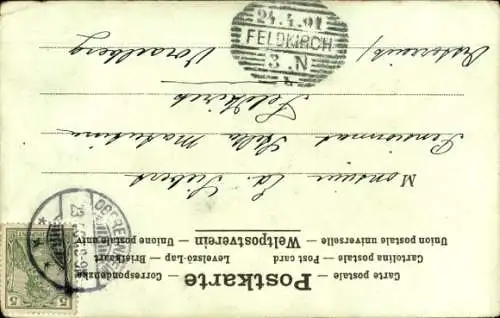 Postkarte
Carte postale — Correspondenzkarte
Cartolina postale — Post card — Levelező-Lap — Briefkaart
Union postale universelle — Weltpostverein — Unione postale univ
Monsieur Ed. Siebert
Pensionnat Stella Matutina
Feldkirch
Vorarlberg
24.4.01
FELDKIRCH
3.N
23
5
5